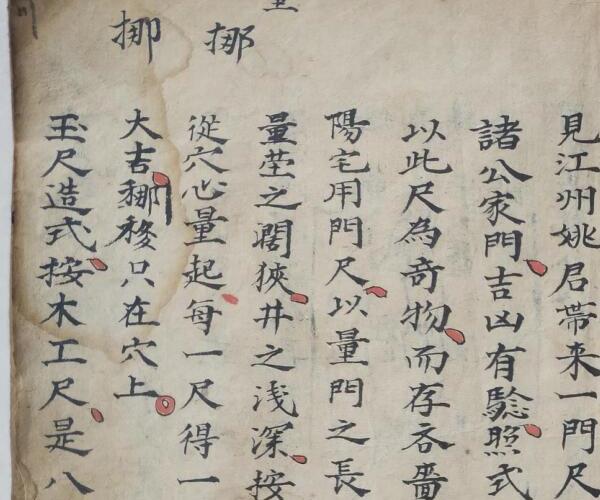 挪
挪
見江州姚君帶来一門尺
諸公家門吉凶有騐照式
以此尺為奇物而存吝嗇
陽宅用門尺以量門之長
量茔之闊狹井之浅深按
從穴心量起每一尺得一
大吉挪移只在穴上
玉尺造式按木工尺是八